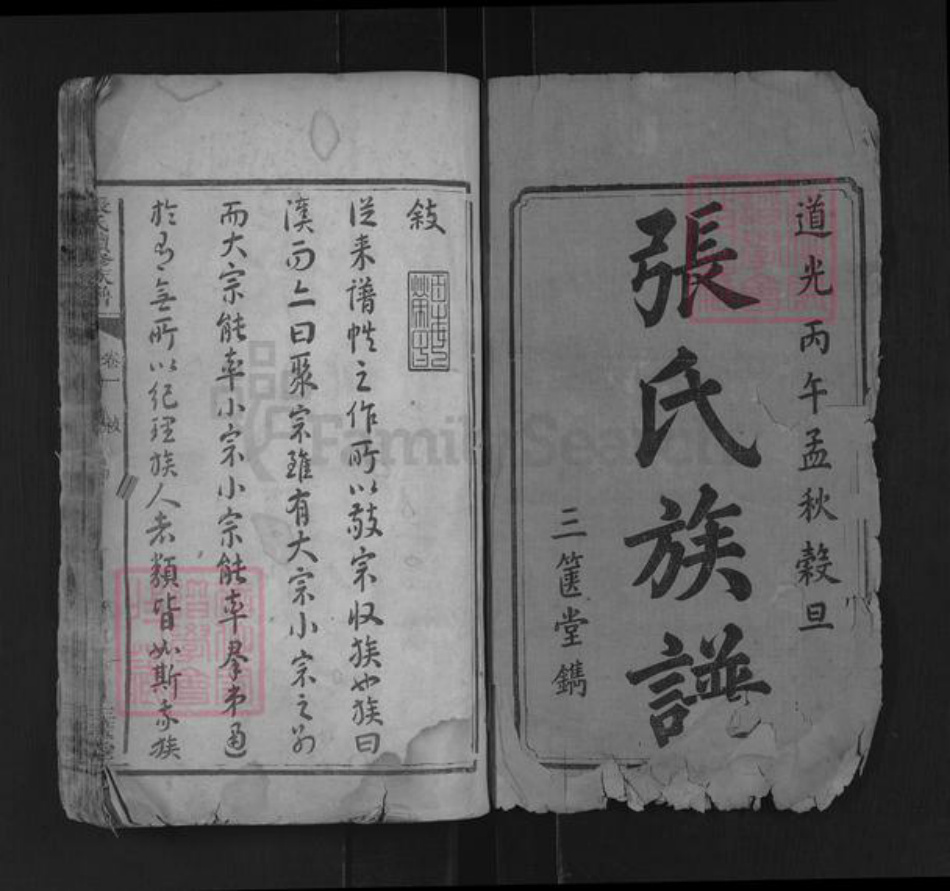 道光丙午孟秋穀旦
張氏族譜
三篋堂鐫
敍
從来譜牒之作所以敬宗収族也族曰
渙而上曰聚宗雖有大宗小宗之別
而大宗能率小宗小宗能率羣弟通
於有無所以紀理族人者類皆如斯吾族
卷一
敍
FamilySearch